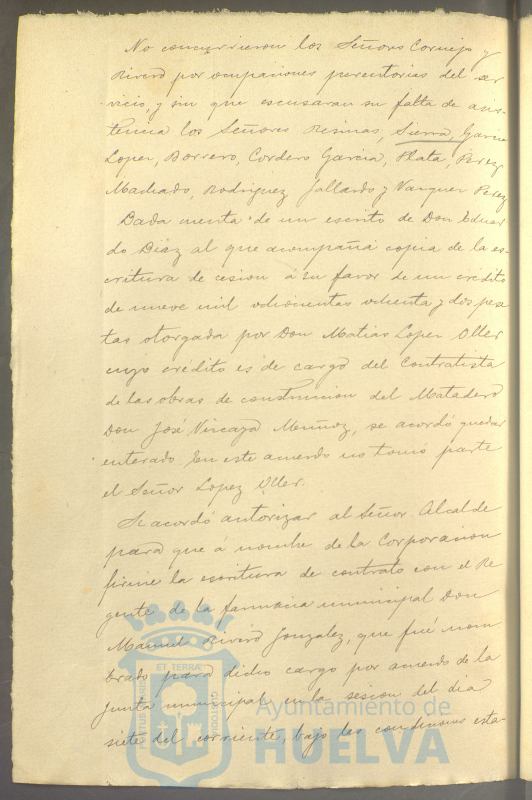 No concurrieron los Señores Cornejo y
Rivero por ocupaciones perentorias del ser
vicio, y sin que escusaran su falta de asis-
tencia los Señores Resinas, Sierra, Garcia
Lopez, Borrero, Cordero Garcia, Plata, Perez
Machado, Rodriguez Gallardo y Vazquez Perez
Dada cuenta de un escrito de Don Eduar
do Diaz al que acompaña copia de la es-
critura de cesion á su favor de un crédito
de nueve mil ochocientas ochenta y dos pese
tas otorgada por Don Matias Lopez Oller
cuyo crédito es de cargo del Contratista
de las obras de construccion del Matadero
Don José Vizcaya Muñoz, se acordó quedar
enterado En este acuerdo no tomó parte
el Señor Lopez Oller.
Se acordó autorizar al Señor Alcalde
para que á nombre de la Corporacion
firme la escritura de contrato con el Re
gente de la farmacia municipal Don
Manuel Rivero Gonzalez, que fué nom
brado para dicho cargo por acuerdo de la
Junta municipal en la sesion del dia
siete del corriente, bajo las condiciones esta-
ET TERRÆ
Ayuntamiento de
HUELVA